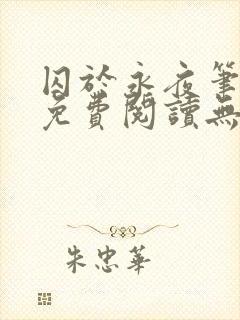 囚於永夜筆
免費閱讀無
朱忠華